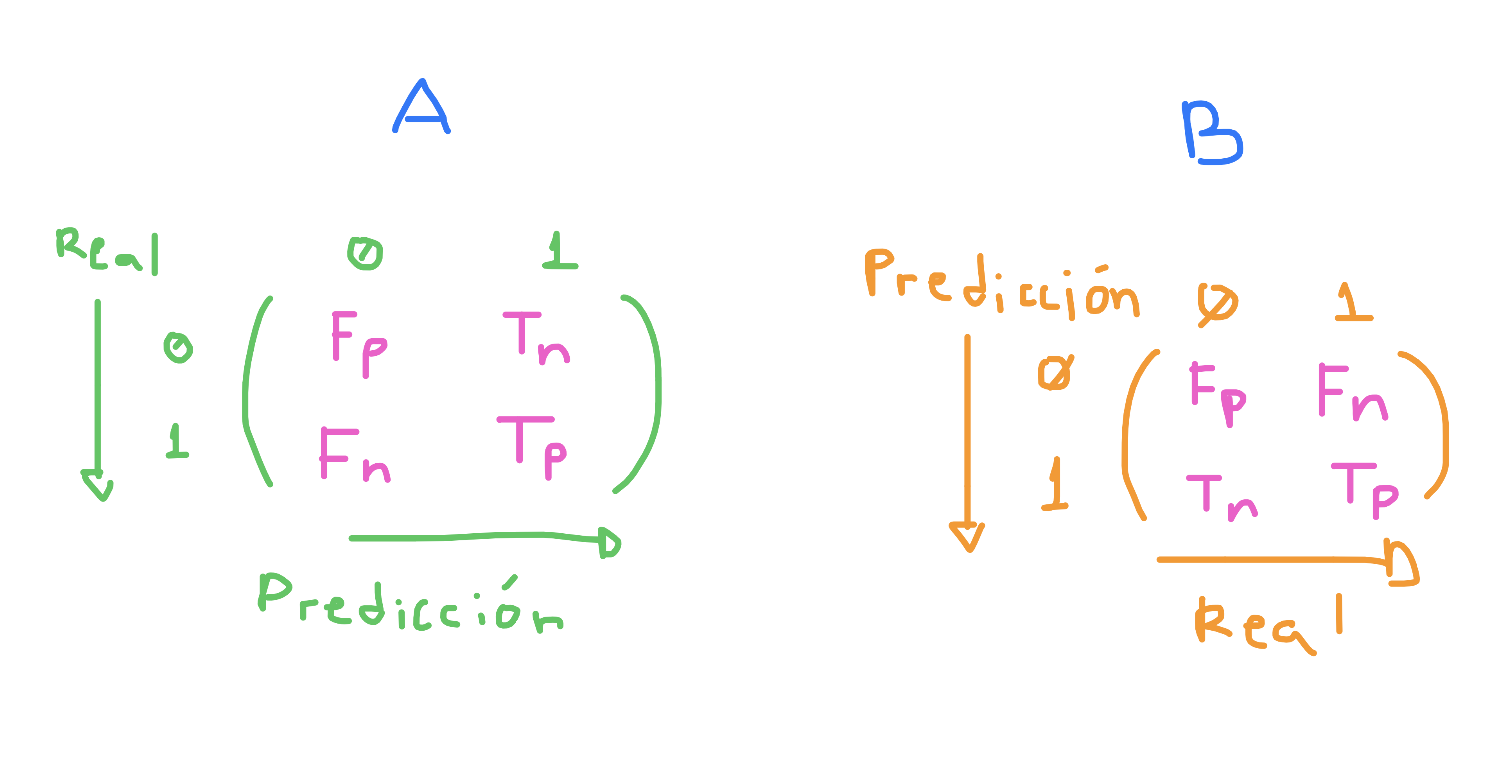 A
Real 0 1
0 Fp Tn
1 Fn Tp
Predicción
B
Predicción 0 1
0 Fp Fn
1 Tn Tp
Real